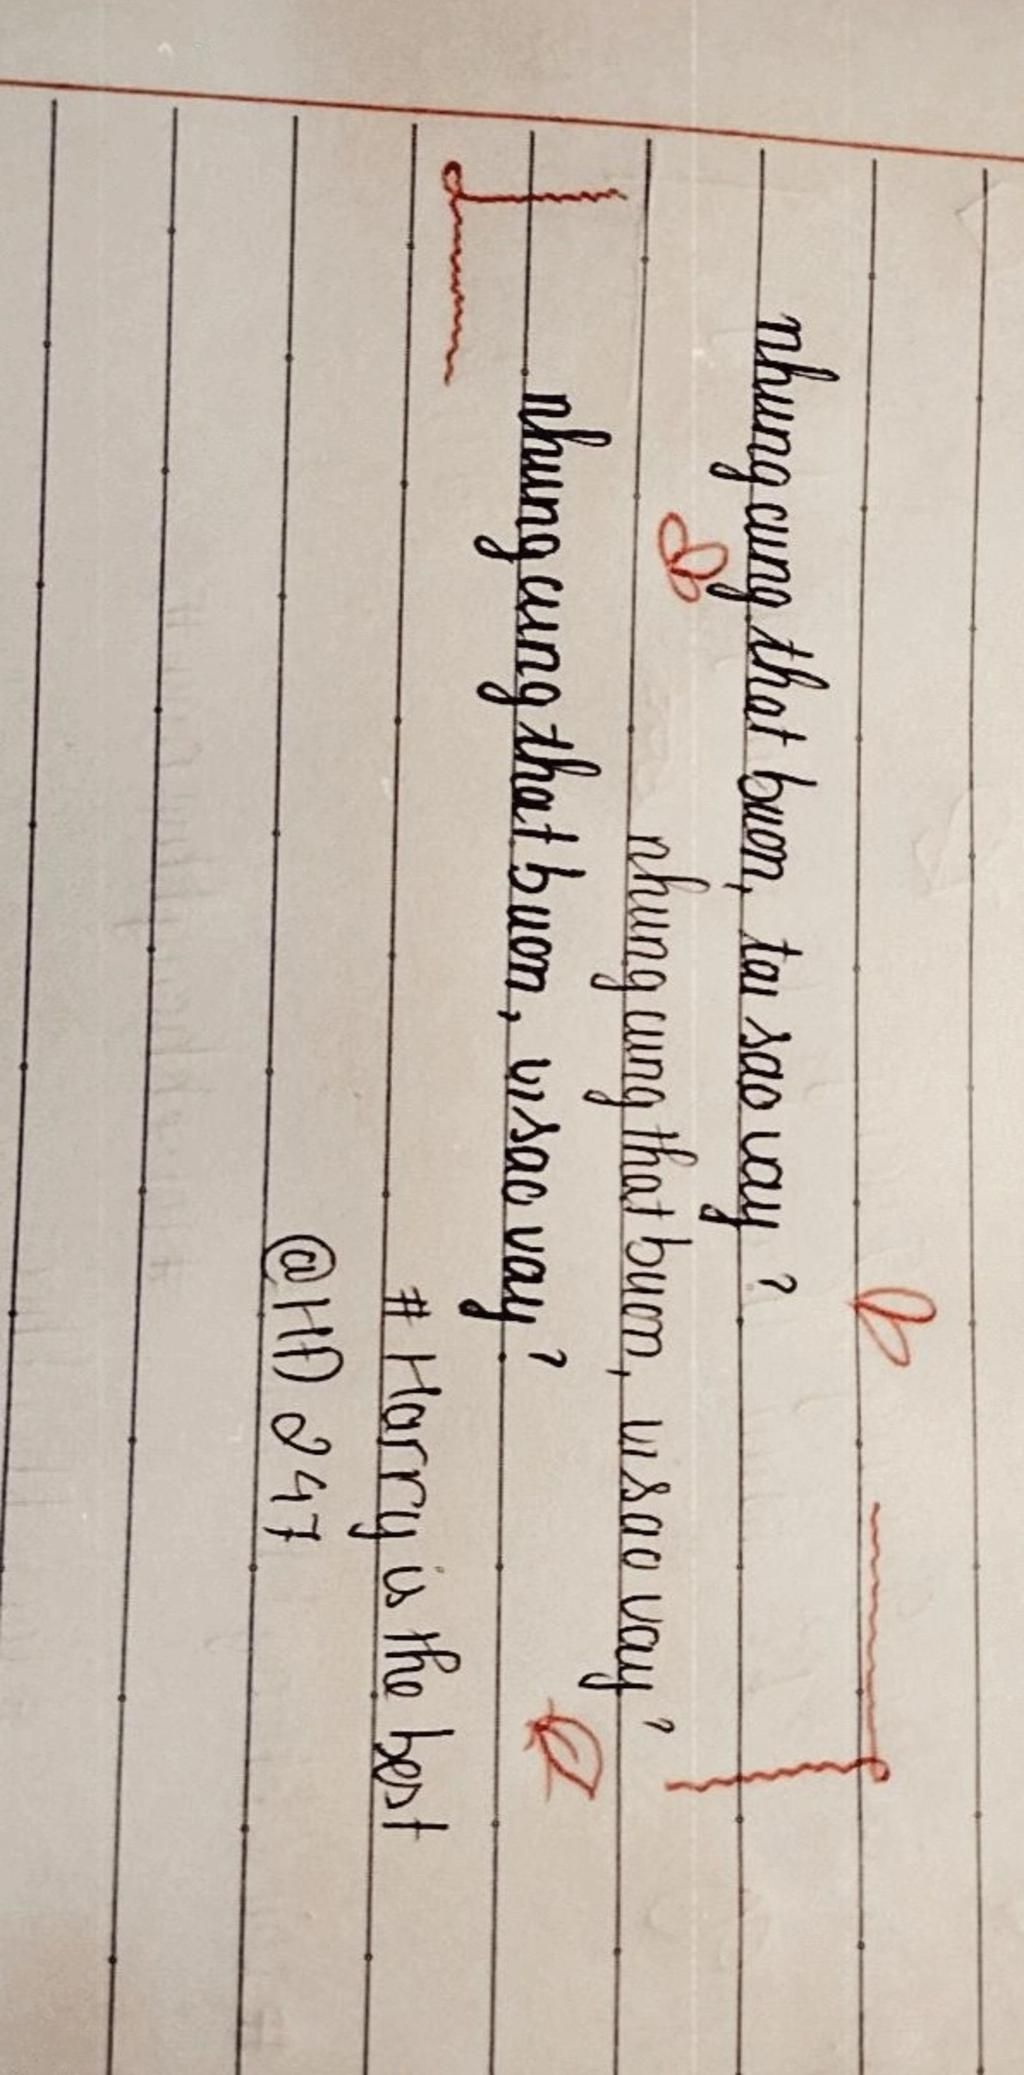 nhung cung that buon, tai sao vay?
nhung cung that buon, vi sao vay?
nhung cung that buon, vi sao vay?
# Harry is the best
@HD 247